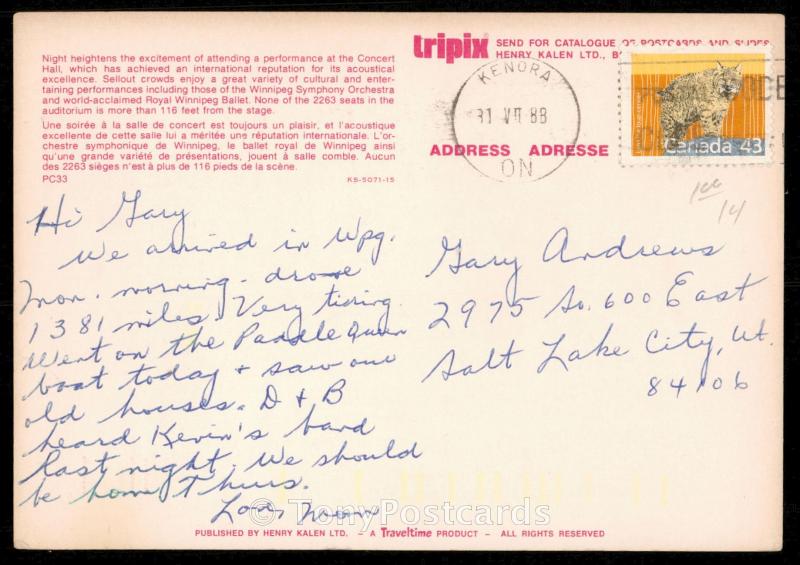 Night heightens the excitement of attending a performance at the Concert
Hall, which has achieved an international reputation for its acoustical
excellence. Sellout crowds enjoy a great variety of cultural and enter-
taining performances including those of the Winnipeg Symphony Orchestra
and world-acclaimed Royal Winnipeg Ballet. None of the 2263 seats in the
auditorium is more than 116 feet from the stage.
Une soirée à la salle de concert est toujours un plaisir, et l'acoustique
excellente de cette salle lui a méritée une réputation internationale. L'or-
chestre symphonique de Winnipeg, le ballet royal de Winnipeg ainsi
qu'une grande variété de présentations, jouent à salle comble. Aucun
des 2263 sièges n'est à plus de 116 pieds de la scène.
PC33
KS-5071-15
tripix SEND FOR CATALOGUE OF POSTCARDS AND SLIDES
HENRY KALEN LTD., B
KENORA
31 VII 88
ON
CODE
Canada 43
ADDRESS ADRESSE
100
14
Hi Gary
We arrived in Wpg.
Mon. morning - drove
1381 miles. Very tiring
Went on the Paddle Queen
boat today + saw our
old houses. D + B
heard Kevin's band
last night. We should
be home Thurs.
Love, Mom
Gary Andrews
2975 So. 600 East
Salt Lake City, Ut.
84106
© TonyPostcards
PUBLISHED BY HENRY KALEN LTD. – A Traveltime PRODUCT – ALL RIGHTS RESERVED